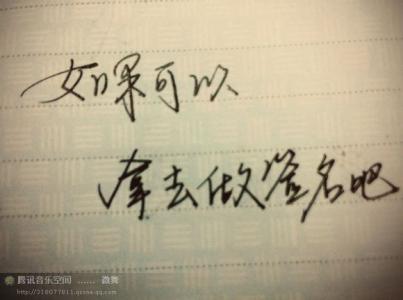 如果可以
拿去做签名吧
腾讯音乐空间 ...... 微舞
http://218077811.qzone.qq.com